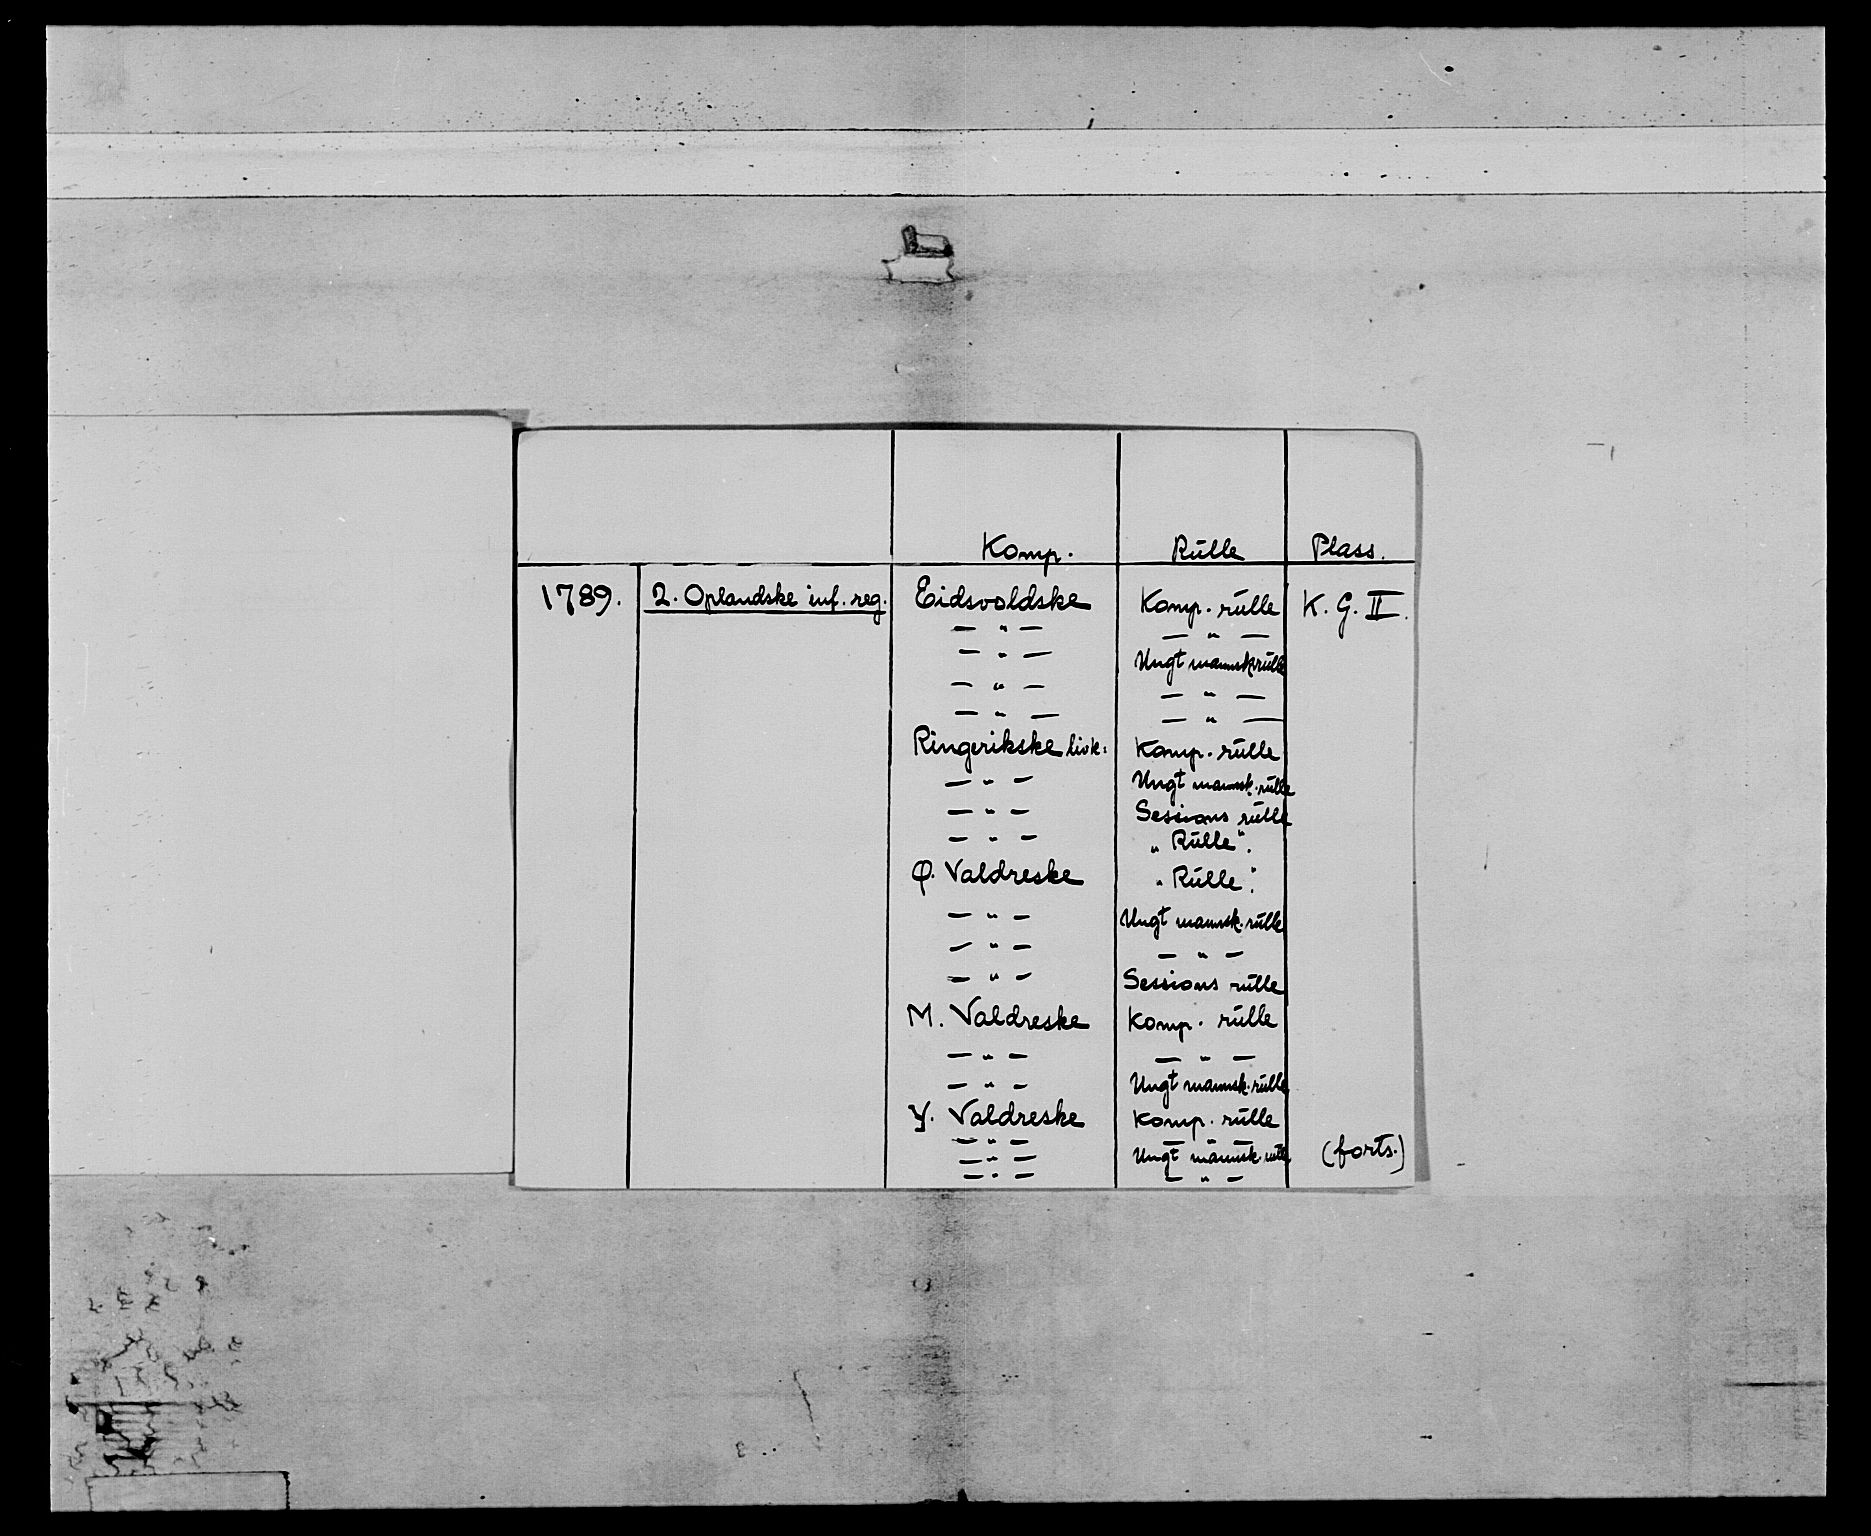 Komp. Rulle Plass.
1789. 2. Oplandske inf. reg. Eidsvoldske Komp. rulle K. G. II.
— " — — " —
— " — Ungt mannsk.rulle
— " — — " —
— " — — " —
Ringerikske livk: Komp. rulle
— " — Ungt mannsk. rulle
— " — Sessions rulle
— " — „ Rulle".
Ø. Valdreske „ Rulle".
— " — Ungt mannsk. rulle
— " — — " —
— " — Sessions rulle
M. Valdreske Komp. rulle
— " — — " —
— " — Ungt mannsk. rulle
Y. Valdreske Komp. rulle
— " — — " —
— " — Ungt mannsk. rulle (forts.)
— " — — " —